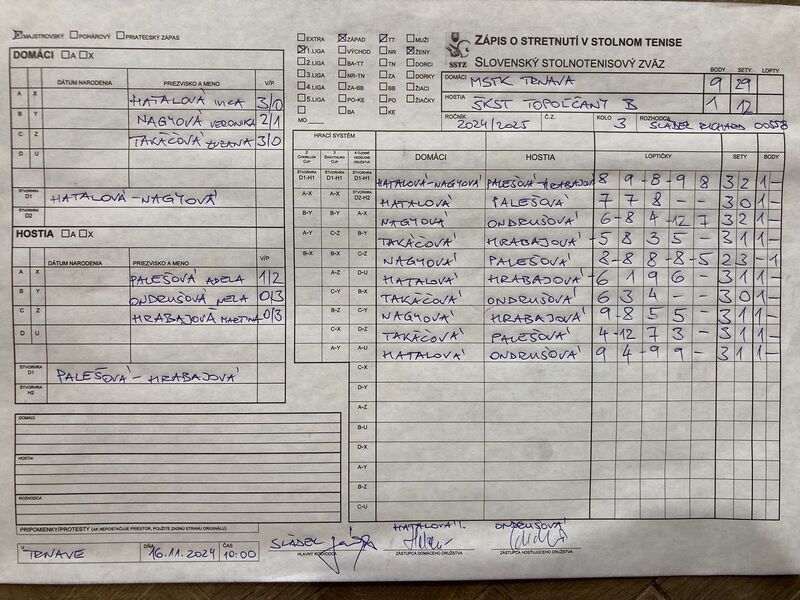 MAJSTROVSKÝ POHÁROVÝ PRIATEĽSKÝ ZÁPAS
DOMÁCI A X
DÁTUM NARODENIA PRIEZVISKO A MENO V/P
A X HATALOVÁ IVICA 3/0
B Y NAGYOVÁ VERONIKA 2/1
C Z TAKÁČOVÁ ZUZANA 3/0
D U
ŠTVORHRA D1 HATALOVÁ - NAGYOVÁ
ŠTVORHRA D2
HOSTIA A X
DÁTUM NARODENIA PRIEZVISKO A MENO V/P
A X PALEŠOVÁ ADELA 1/2
B Y ONDRUŠOVÁ NELA 0/3
C Z HRABAJOVÁ MARTINA 0/3
D U
ŠTVORHRA D1 PALEŠOVÁ - HRABAJOVÁ
ŠTVORHRA H2
DOMÁCI
HOSTIA
ROZHODCA
PRIPOMIENKY/PROTESTY (AK NEPOSTAČUJE PRIESTOR, POUŽITE ZADNÚ STRANU ORIGINÁLU)
TRNAVE DŇA 16.11.2024 ČAS 10:00
EXTRA ZÁPAD TT MUŽI
1.LIGA VÝCHOD NR ŽENY
2.LIGA BA-TT TN DORCI
3.LIGA NR-TN ZA DORKY
4.LIGA ZA-BB BB ŽIACI
5.LIGA PO-KE PO ŽIAČKY
MO BA KE
SSTZ
ZÁPIS O STRETNUTÍ V STOLNOM TENISE
SLOVENSKÝ STOLNOTENISOVÝ ZVÄZ
BODY SETY LOPTY
DOMÁCI MSTK TRNAVA 9 29
HOSTIA ŠKST TOPOĽČANY B 1 12
ROČNÍK 2024/2025 Č.Z. KOLO 3 ROZHODCA SLÁDEK RICHARD 00558
HRACÍ SYSTÉM
DOMÁCI HOSTIA LOPTIČKY SETY BODY
ŠTVORHRA D1-H1 ŠTVORHRA D1-H1 ŠTVORHRA D1-H1 HATALOVÁ-NAGYOVÁ PALEŠOVÁ-HRABAJOVÁ 8 9 -8 -9 8 3 2 1 -
A-X A-X D2-H2 HATALOVÁ PALEŠOVÁ 7 7 8 - - 3 0 1 -
B-Y B-Y A-X NAGYOVÁ ONDRUŠOVÁ 6 -8 4 -12 7 3 2 1
A-Y C-Z B-Y TAKÁČOVÁ HRABAJOVÁ -5 8 3 5 - 3 1 1 -
B-X B-X C-Z NAGYOVÁ PALEŠOVÁ -8 -8 8 8 -5 2 3 - 1
A-Z D-U HATALOVÁ HRABAJOVÁ 6 1 9 6 - 3 1 1 -
C-Y B-X TAKÁČOVÁ ONDRUŠOVÁ 6 3 4 - - 3 0 1 -
B-Z C-Y NAGYOVÁ HRABAJOVÁ 9 -8 5 5 - 3 1 1 -
C-X D-Z TAKÁČOVÁ PALEŠOVÁ 4 -12 7 3 - 3 1 1 -
A-Y A-U HATALOVÁ ONDRUŠOVÁ 9 4 -9 9 - 3 1 1 -
C-X
D-Y
A-Z
B-U
D-X
A-Y
B-Z
C-U
SLÁDEK HATALOVÁ I. ONDRUŠOVÁ
HLAVNÝ ROZHODCA ZÁSTUPCA DOMÁCEHO DRUŽSTVA ZÁSTUPCA HOSŤUJÚCEHO DRUŽSTVA